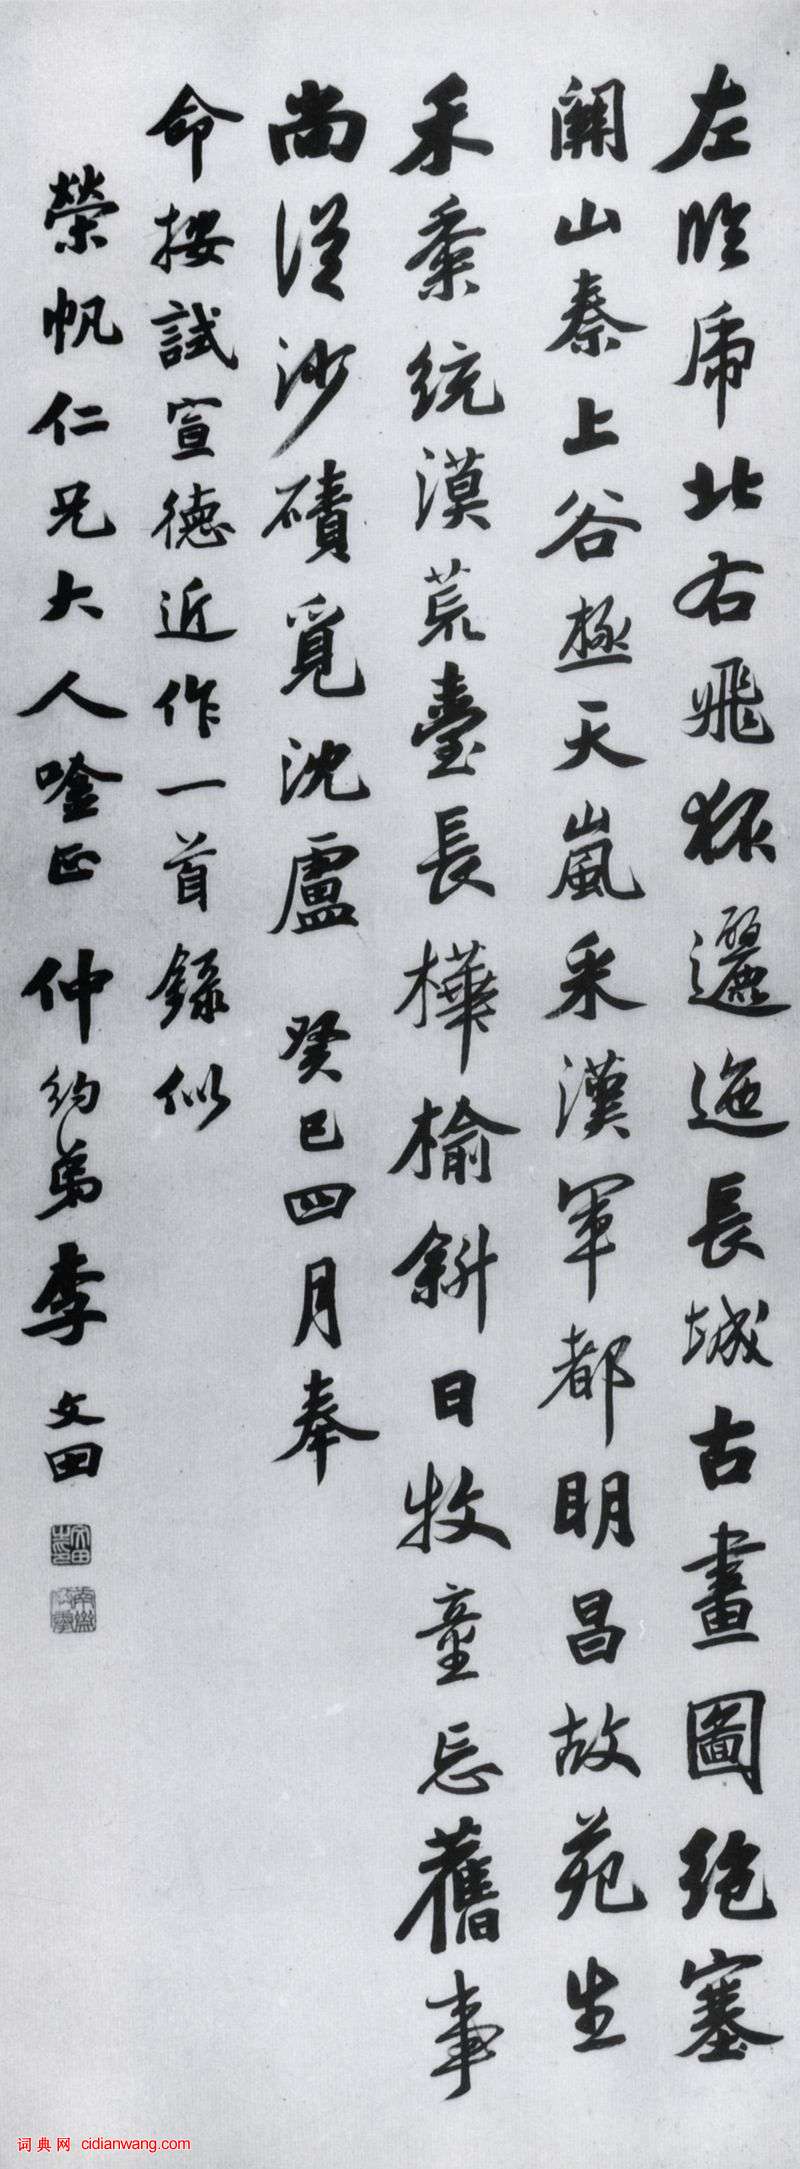 左臨虎北右飛狐邐迤長城古畫圖絕塞
關山秦上谷極天嵐采漢軍都明昌故苑生
禾黍統漠荒臺長樺榆斜日牧童忘舊事
尚從沙磧覓沈盧 癸巳四月奉
命按試宣德近作一首錄似
榮帆仁兄大人唫正 仲約弟李文田
词典网 cidianwang.com